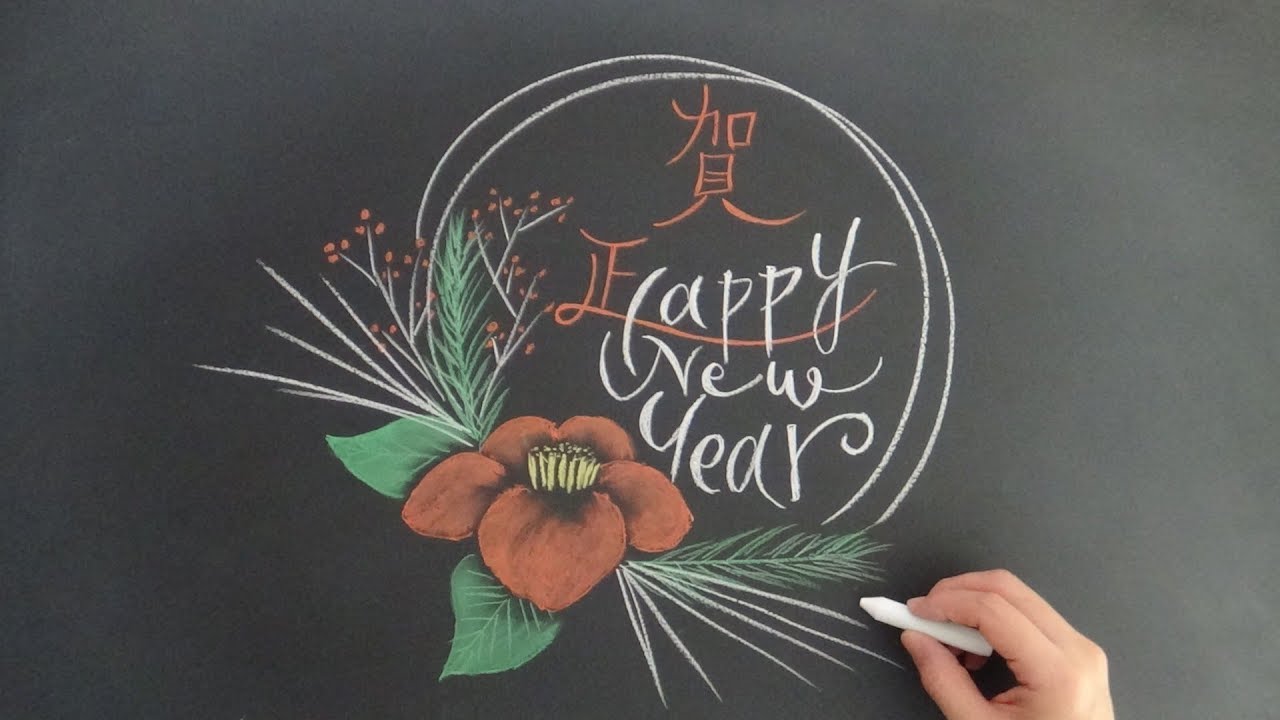 賀
正
Happy
New
Year